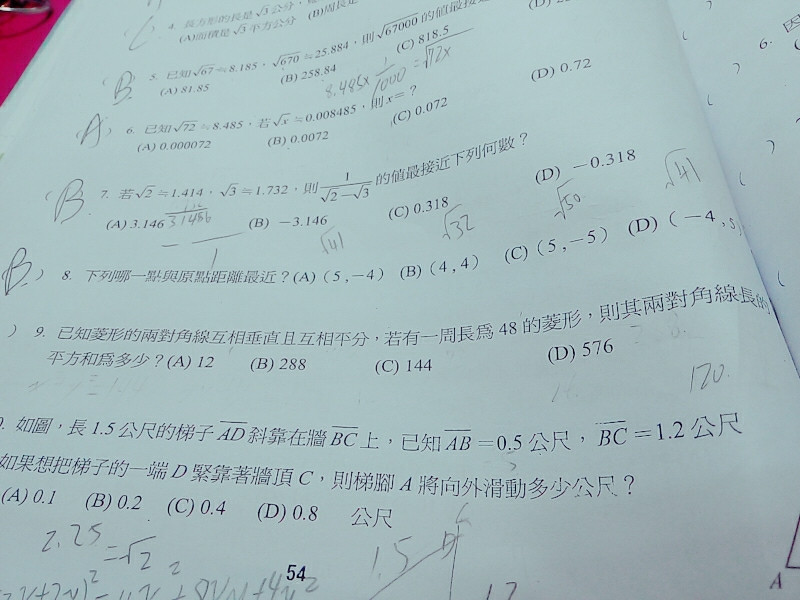 4. 長方形的長是√3公分，
(A)面積是√3平方公分 (B)周長是
B 5. 已知√67≒8.185，√670≒25.884，則√67000的值最接近
(A) 81.85 (B) 258.84 (C) 818.5
8.485× 1/1000 =√72x
(A) 6. 已知√72≒8.485，若√x≒0.008485，則x=？
(A) 0.000072 (B) 0.0072 (C) 0.072 (D) 0.72
(B 7. 若√2≒1.414，√3≒1.732，則 1/(√2-√3) 的值最接近下列何數？
(A) 3.146 (B) -3.146 (C) 0.318 (D) -0.318
√41 √32 √50 √41
B ) 8. 下列哪一點與原點距離最近？(A) (5,-4) (B) (4,4) (C) (5,-5) (D) (-4,5
) 9. 已知菱形的兩對角線互相垂直且互相平分，若有一周長為48的菱形，則其兩對角線長的
平方和為多少？(A) 12 (B) 288 (C) 144 (D) 576
120.
如圖，長1.5公尺的梯子AD斜靠在牆BC上，已知AB=0.5公尺，BC=1.2公尺
如果想把梯子的一端D緊靠著牆頂C，則梯腳A將向外滑動多少公尺？
(A) 0.1 (B) 0.2 (C) 0.4 (D) 0.8 公尺
2.25
=√2
1.5
54
A
6. 因